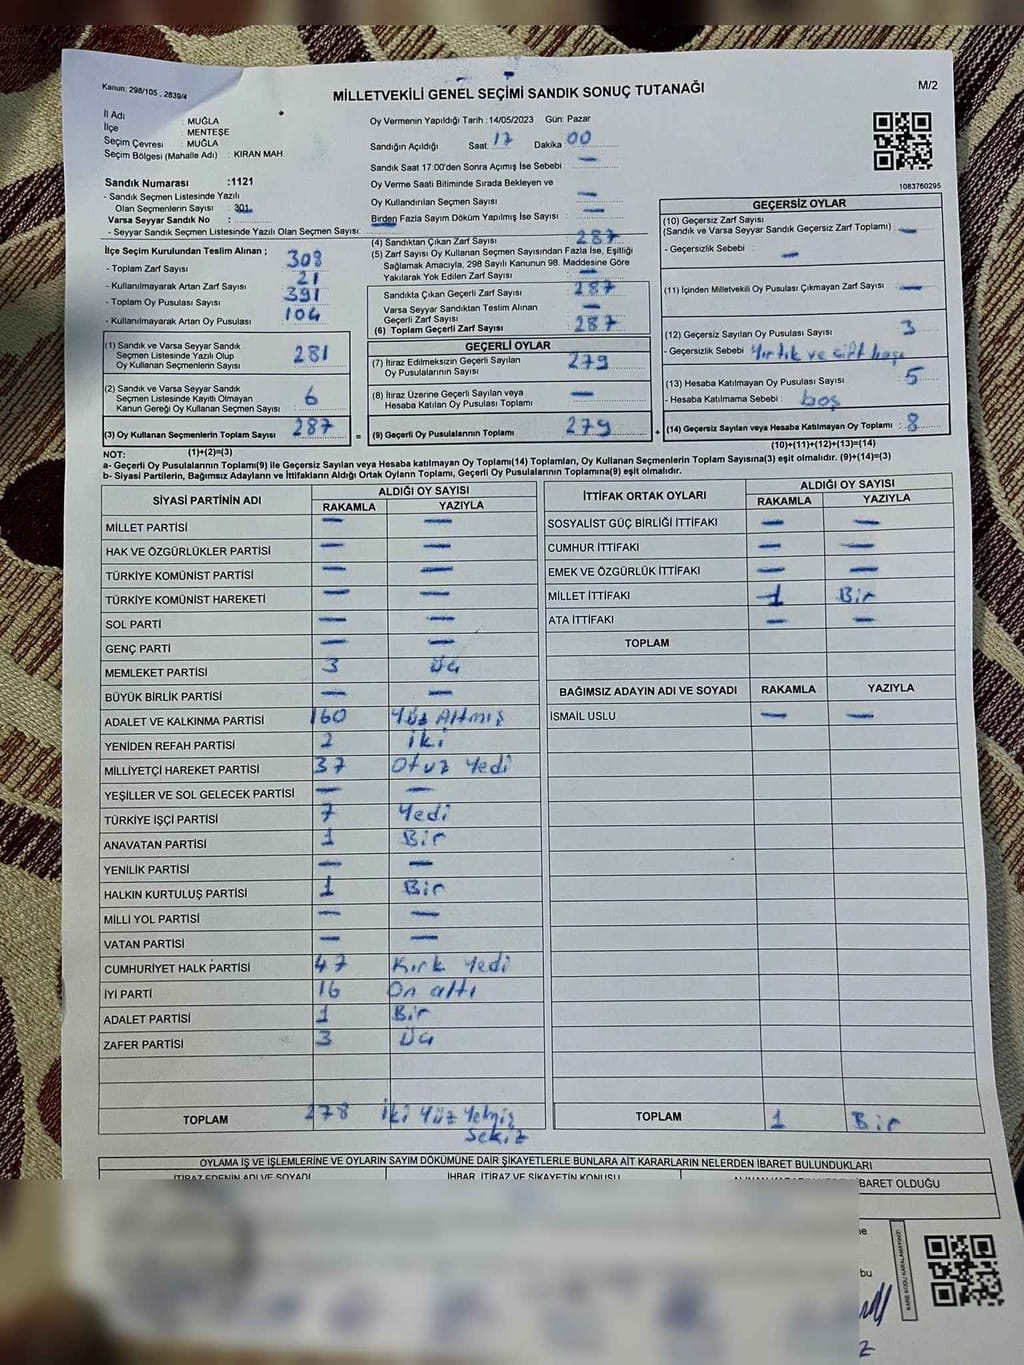 Kanun: 298/105 . 2839/4
MİLLETVEKİLİ GENEL SEÇİMİ SANDIK SONUÇ TUTANAĞI
M/2
İl Adı : MUĞLA
İlçe MENTEŞE
Seçim Çevresi : MUĞLA
Seçim Bölgesi (Mahalle Adı) : KIRAN MAH.
Oy Vermenin Yapıldığı Tarih : 14/05/2023 Gün: Pazar
Sandığın Açıldığı Saat: 17 Dakika 00
Sandık Saat 17:00'den Sonra Açımış İse Sebebi : —
Oy Verme Saati Bitiminde Sırada Bekleyen ve
Oy Kullandırılan Seçmen Sayısı —
Birden Fazla Sayım Döküm Yapılmış İse Sayısı : —
1083760295
Sandık Numarası :1121
- Sandık Seçmen Listesinde Yazılı
Olan Seçmenlerin Sayısı : 301
Varsa Seyyar Sandık No :
- Seyyar Sandık Seçmen Listesinde Yazılı Olan Seçmen Sayısı:
İlçe Seçim Kurulundan Teslim Alınan ;
- Toplam Zarf Sayısı 308
- Kullanılmayarak Artan Zarf Sayısı 21
- Toplam Oy Pusulası Sayısı 391
- Kullanılmayarak Artan Oy Pusulası 104
(1) Sandık ve Varsa Seyyar Sandık
Seçmen Listesinde Yazılı Olup
Oy Kullanan Seçmenlerin Sayısı 281
(2) Sandık ve Varsa Seyyar Sandık
Seçmen Listesinde Kayıtlı Olmayan
Kanun Gereği Oy Kullanan Seçmen Sayısı 6
(3) Oy Kullanan Seçmenlerin Toplam Sayısı 287
(4) Sandıktan Çıkan Zarf Sayısı 287
(5) Zarf Sayısı Oy Kullanan Seçmen Sayısından Fazla İse, Eşitliği
Sağlamak Amacıyla, 298 Sayılı Kanunun 98. Maddesine Göre
Yakılarak Yok Edilen Zarf Sayısı —
Sandıkta Çıkan Geçerli Zarf Sayısı 287
Varsa Seyyar Sandıktan Teslim Alınan
Geçerli Zarf Sayısı —
(6) Toplam Geçerli Zarf Sayısı 287
GEÇERLİ OYLAR
(7) İtiraz Edilmeksizin Geçerli Sayılan
Oy Pusulalarının Sayısı 279
(8) İtiraz Üzerine Geçerli Sayılan veya
Hesaba Katılan Oy Pusulası Toplamı —
= (9) Geçerli Oy Pusulalarının Toplamı 279
GEÇERSİZ OYLAR
(10) Geçersiz Zarf Sayısı
(Sandık ve Varsa Seyyar Sandık Geçersiz Zarf Toplamı) —
- Geçersizlik Sebebi : —
(11) İçinden Milletvekili Oy Pusulası Çıkmayan Zarf Sayısı —
(12) Geçersiz Sayılan Oy Pusulası Sayısı 3
- Geçersizlik Sebebi Yırtık ve çift başı
(13) Hesaba Katılmayan Oy Pusulası Sayısı 5
- Hesaba Katılmama Sebebi : boş
+ (14) Geçersiz Sayılan veya Hesaba Katılmayan Oy Toplamı : 8
NOT: (1)+(2)=(3)
(10)+(11)+(12)+(13)=(14)
a- Geçerli Oy Pusulalarının Toplamı(9) ile Geçersiz Sayılan veya Hesaba katılmayan Oy Toplamı(14) Toplamları, Oy Kullanan Seçmenlerin Toplam Sayısına(3) eşit olmalıdır. (9)+(14)=(3)
b- Siyasi Partilerin, Bağımsız Adayların ve İttifakların Aldığı Ortak Oyların Toplamı, Geçerli Oy Pusulalarının Toplamına(9) eşit olmalıdır.
SİYASİ PARTİNİN ADI ALDIĞI OY SAYISI
RAKAMLA YAZIYLA
MİLLET PARTİSİ — —
HAK VE ÖZGÜRLÜKLER PARTİSİ — —
TÜRKİYE KOMÜNİST PARTİSİ — —
TÜRKİYE KOMÜNİST HAREKETİ — —
SOL PARTİ — —
GENÇ PARTİ — —
MEMLEKET PARTİSİ 3 Üç
BÜYÜK BİRLİK PARTİSİ — —
ADALET VE KALKINMA PARTİSİ 160 Yüz Altmış
YENİDEN REFAH PARTİSİ 2 İki
MİLLİYETÇİ HAREKET PARTİSİ 37 Otuz Yedi
YEŞİLLER VE SOL GELECEK PARTİSİ — —
TÜRKİYE İŞÇİ PARTİSİ 7 Yedi
ANAVATAN PARTİSİ 1 Bir
YENİLİK PARTİSİ — —
HALKIN KURTULUŞ PARTİSİ 1 Bir
MİLLİ YOL PARTİSİ — —
VATAN PARTİSİ — —
CUMHURİYET HALK PARTİSİ 47 Kırk Yedi
İYİ PARTİ 16 On altı
ADALET PARTİSİ 1 Bir
ZAFER PARTİSİ 3 Üç
TOPLAM 278 İki Yüz Yetmiş
Sekiz
İTTİFAK ORTAK OYLARI ALDIĞI OY SAYISI
RAKAMLA YAZIYLA
SOSYALİST GÜÇ BİRLİĞİ İTTİFAKI — —
CUMHUR İTTİFAKI — —
EMEK VE ÖZGÜRLÜK İTTİFAKI — —
MİLLET İTTİFAKI 1 Bir
ATA İTTİFAKI — —
TOPLAM
BAĞIMSIZ ADAYIN ADI VE SOYADI RAKAMLA YAZIYLA
İSMAİL USLU — —
TOPLAM 1 Bir
OYLAMA İŞ VE İŞLEMLERİNE VE OYLARIN SAYIM DÖKÜMÜNE DAİR ŞİKAYETLERLE BUNLARA AİT KARARLARIN NELERDEN İBARET BULUNDUKLARI
İTİRAZ EDENİN ADI VE SOYADI İHBAR, İTİRAZ VE ŞİKAYETİN KONUSU
İBARET OLDUĞU
bu
KARE KODU KARALAMAYINIZ!